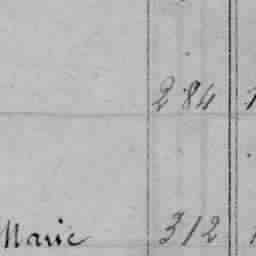 284
Marie 312